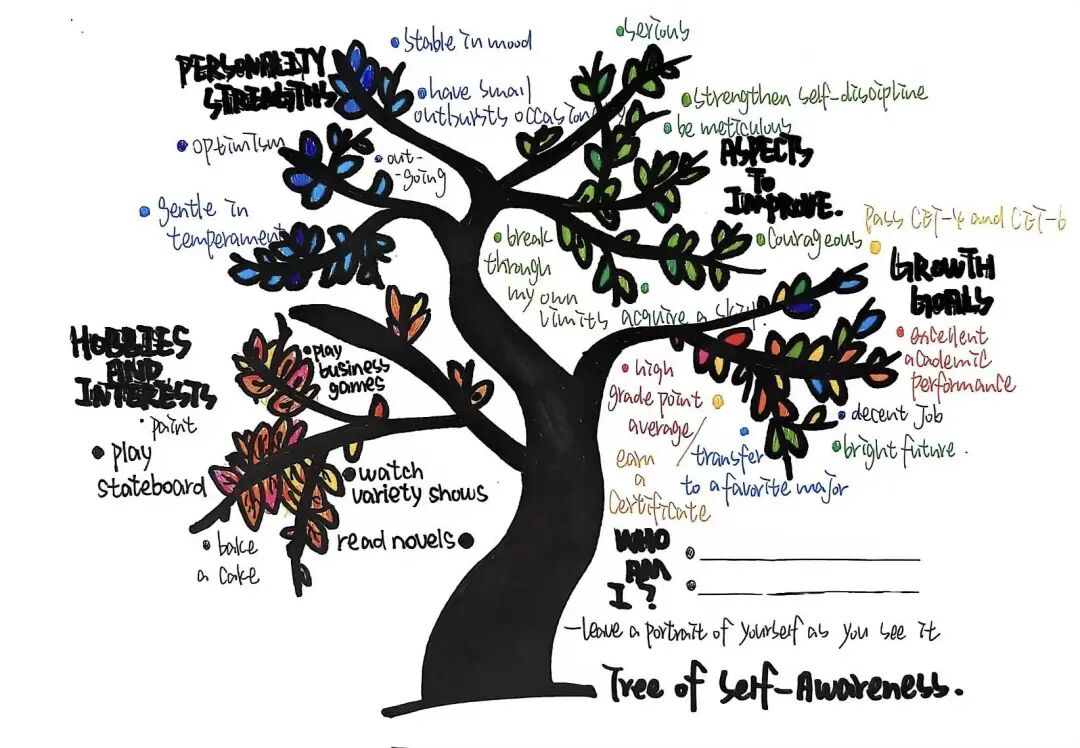 PERSONALITY
STRENGTHS
stable in mood
have small
outbursts occasion
optimism
out-
-going
gentle in
temperament
serious
strengthen self-discipline
be meticulous
ASPECTS
To
IMPROVE.
courageous
break
through
my own
limits
acquire a skill.
Pass CET-4 and CET-6
GROWTH
GOALS
excellent
academic
performance
decent Job
bright future.
high
grade point
average
earn
a
Certificate
transfer
to a favorite major
HOBBIES
AND
INTERESTS
paint
play
stateboard
play
business
games
watch
variety shows
read novels
bake
a cake
WHO
AM
I?
-leave a portrait of yourself as you see it
Tree of Self-Awareness.